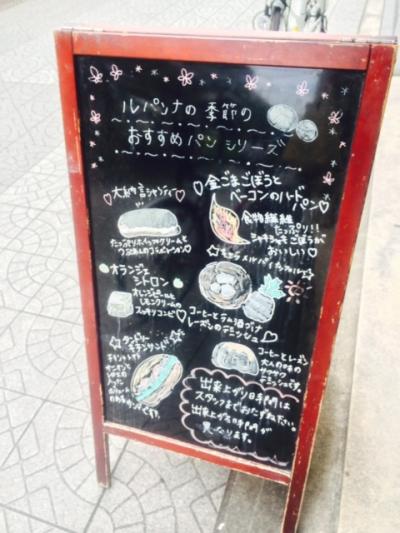 ルパンナの季節の
おすすめパンシリーズ
♡大納言シャンティ♡
たっぷりホイップクリームと
オランジェ
シトロン
オレンジピールと
レモンクリームの
スッキリコンビ♡
☆タンドリー
チキンサンド☆
♡金ごまごぼうと
ベーコンのハードパン♡
食物繊維
たっぷり!!
シャキシャキごぼうが
おいしい♡
コーヒーとラム酒づけ
レーズンのデニッシュ♡
コーヒーとレーズン
大人の味の
サクサク
デニッシュです。
出来上がり時間は
スタッフまでおたずね下さい。
出来上がる時間が
異なります。